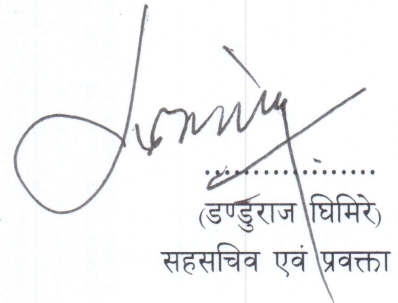 (डण्डुराज घिमिरे)
सहसचिव एवं प्रवक्ता